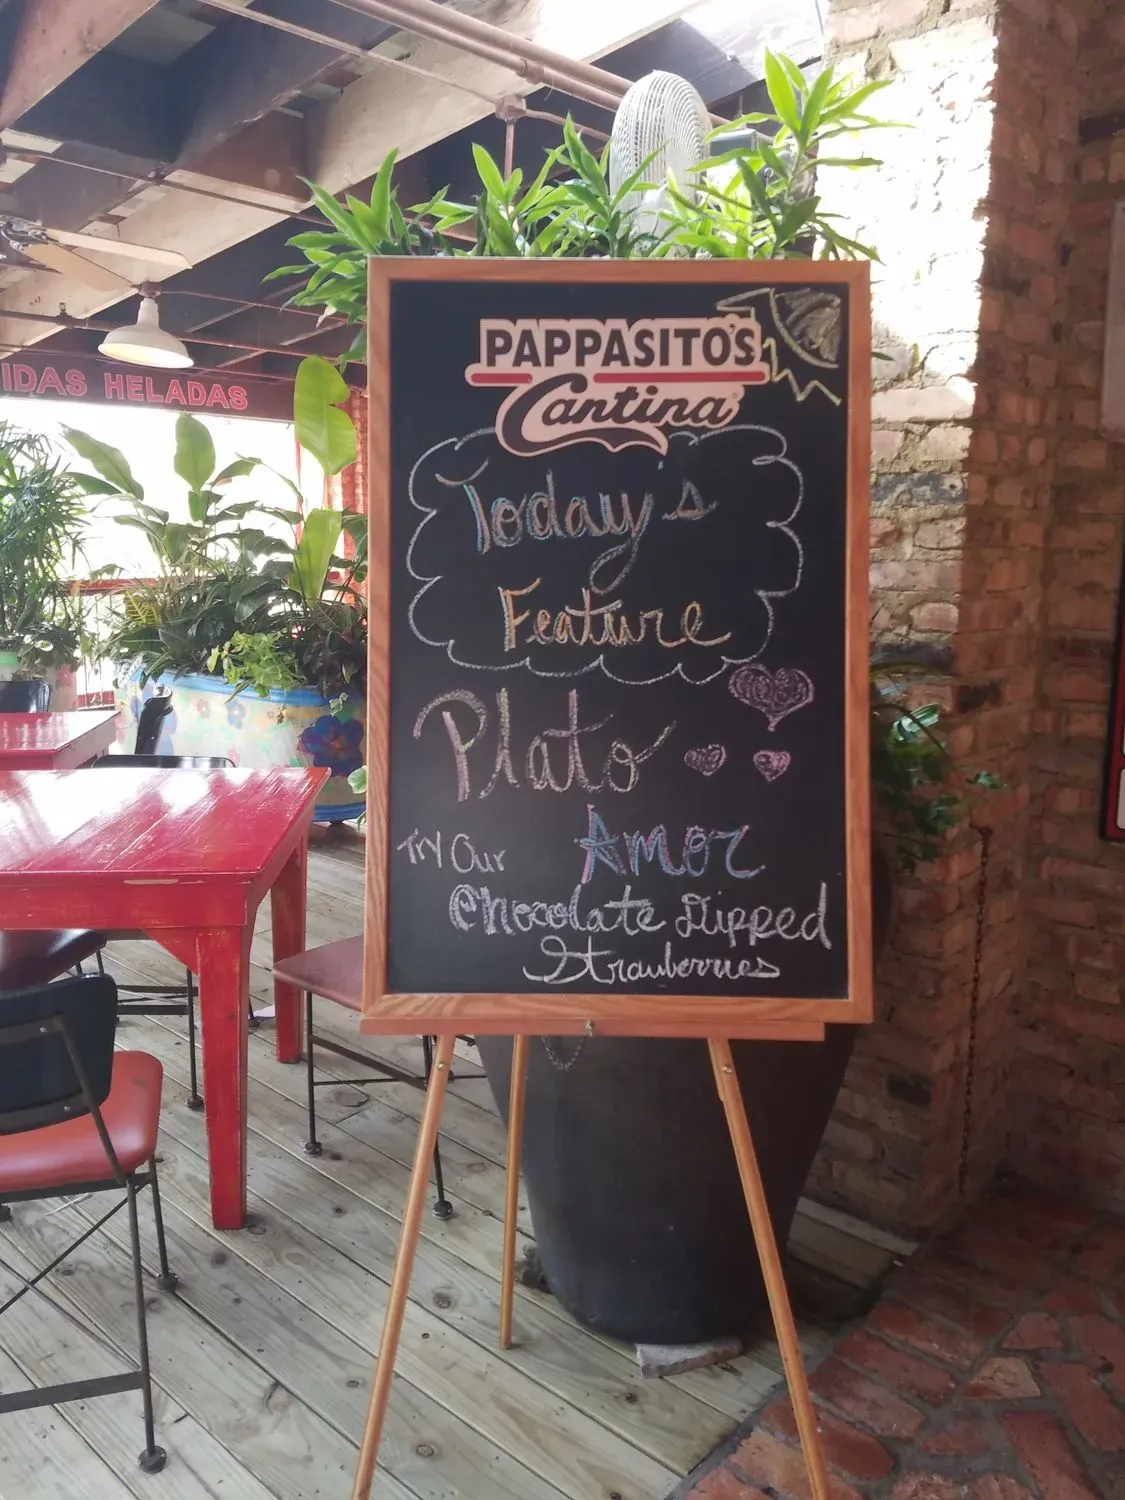 IDAS HELADAS
PAPPASITO'S
Cantina
Today's
Feature
Plato
Amor
Try Our
Chocolate Dipped
Strawberries